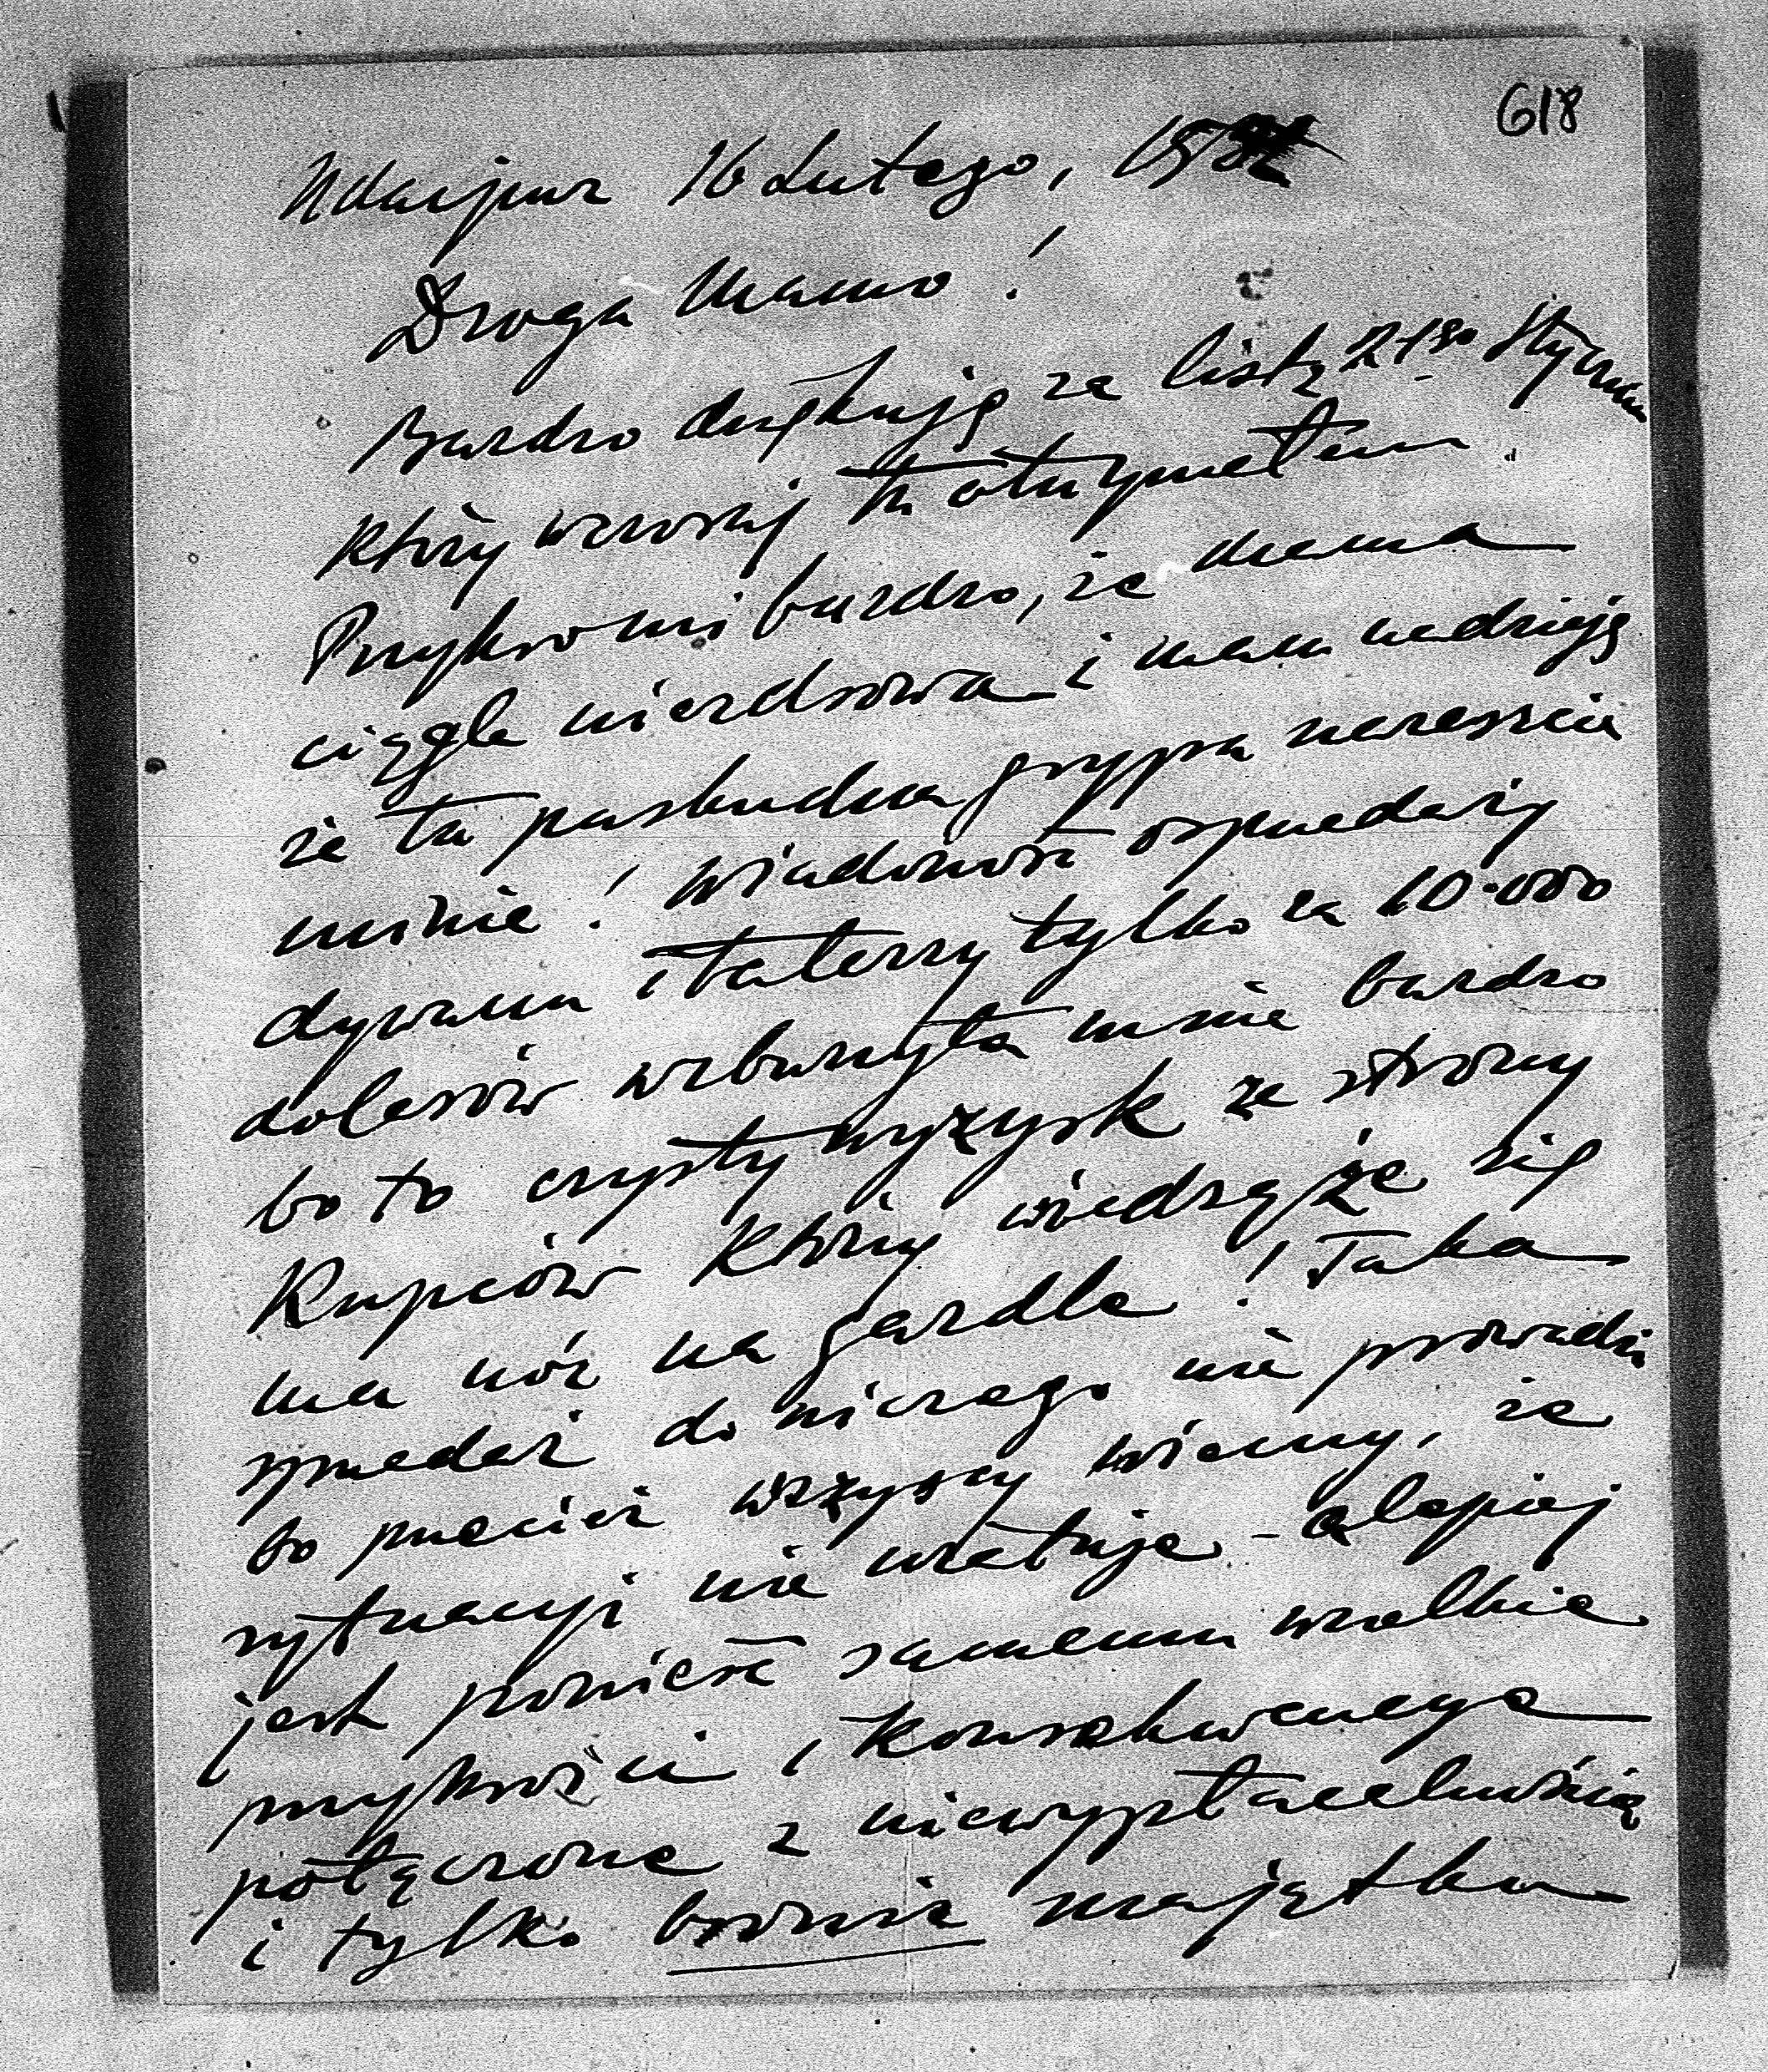 618
Udaipur 16 Lutego,
Droga Mamo!
Bardzo dziękuję za list z 21go Stycznia
który wczoraj tu otrzymałem
Przykro mi bardzo, że mama
ciągle niezdrowa i mam nadzieję
że ta paskudna grypa nareszcie
minie! Wiadomość o sprzedaży
dywanu i talerzy tylko za 10.000
dolarów wzburzyła mnie bardzo
bo to czysty wyzysk ze strony
Kupców którzy wiedzą że się
ma nóż na gardle! Taka
sprzedaż do niczego nie prowadzi
bo przecież wszyscy wiemy, że
sytuacji nie uratuje - a lepiej
jest ponieść samemu wszelkie
przykrości i konsekwencye
połączone z niewypłacalnością
i tylko bronić majątku